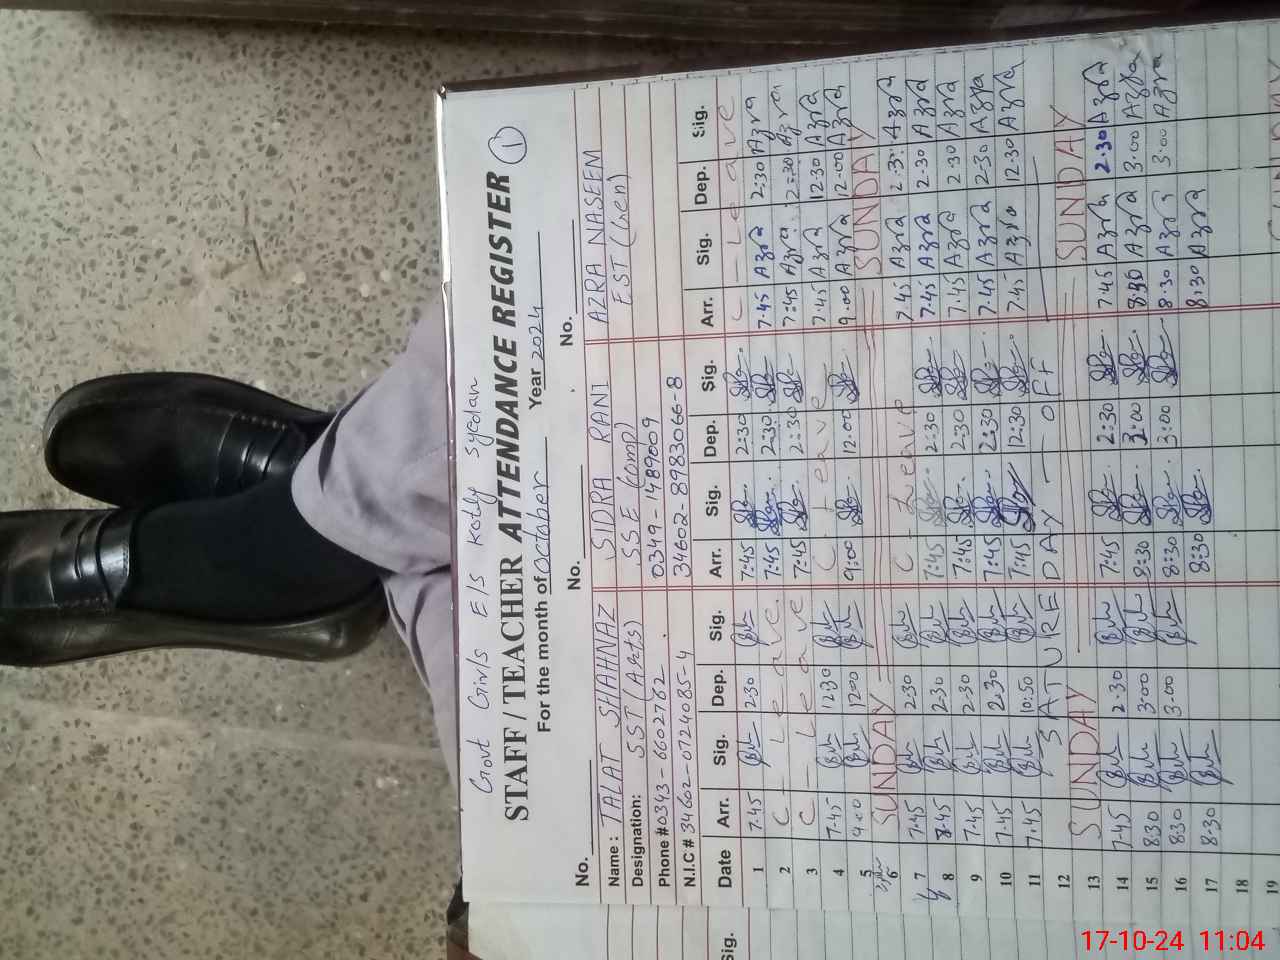 Govt Girls E/S Kotly Syedan
STAFF / TEACHER ATTENDANCE REGISTER 1
For the month of October Year 2024
No. No. No.
Name : TALAT SHAHNAZ SIDRA RANI AZRA NASEEM
Designation: SST (Arts) SSE (Comp) EST (Gen)
Phone # 0343-6602762 0349-1489009
N.I.C # 34602-0724085-4 34602-8983066-8
Date Arr. Sig. Dep. Sig. Arr. Sig. Dep. Sig. Arr. Sig. Dep. Sig.
1 7.45 2.30 7:45 2:30 C - Leave
2 C - Leave 7:45 2:30 7.45 Azra 2:30 Azra
3 C - Leave 7:45 2:30 7:45 Azra 2:30 Azra
4 7.45 12:30 C. Leave 7.45 Azra 12.30 Azra
5 9.00 12:00 9:00 12:00 9.00 Azra 12.00 Azra
6 SUNDAY SUNDAY
7 7.45 2.30 C - Leave 7.45 Azra 2.3 Azra
8 7.45 2.30 7:45 2:30 7.45 Azra 2.30 Azra
9 7.45 2.30 7:45 2:30 7.45 Azra 2.30 Azra
10 7.45 2.30 7:45 2:30 7.45 Azra 2.30 Azra
11 7.45 10:50 7:45 12:30 7.45 Azra 12.30 Azra
12 SATURE DAY - OFF
13 SUNDAY SUNDAY
14 7.45 2.30 7:45 2:30 7.45 Azra 2.30 Azra
15 8:30 3:00 8:30 3:00 8:30 Azra 3.00 Azra
16 8:30 3:00 8:30 3:00 8.30 Azra 3.00 Azra
17 8.30 8:30 8:30 Azra
18
19
Sig.
17-10-24 11:04